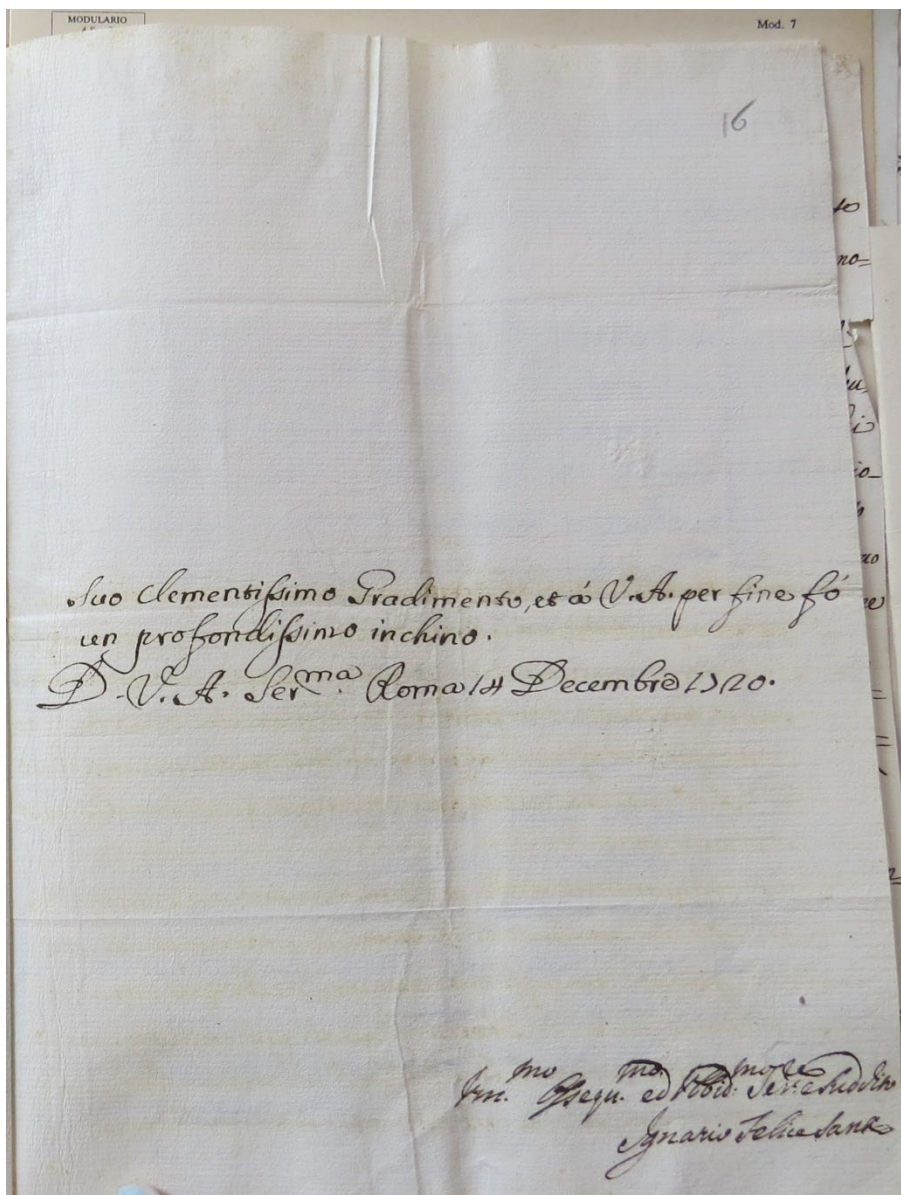 MODULARIO
Mod. 7
16
suo Clementissimo Gradimento, et à V. A. per fine fò
un profondissimo inchino.
D. V. A. Ser.ma Roma 14 Decembre 1720.
Um.mo Ossequ.mo ed Obid.mo Ser.e e Suddito
Ignazio Felice Santi